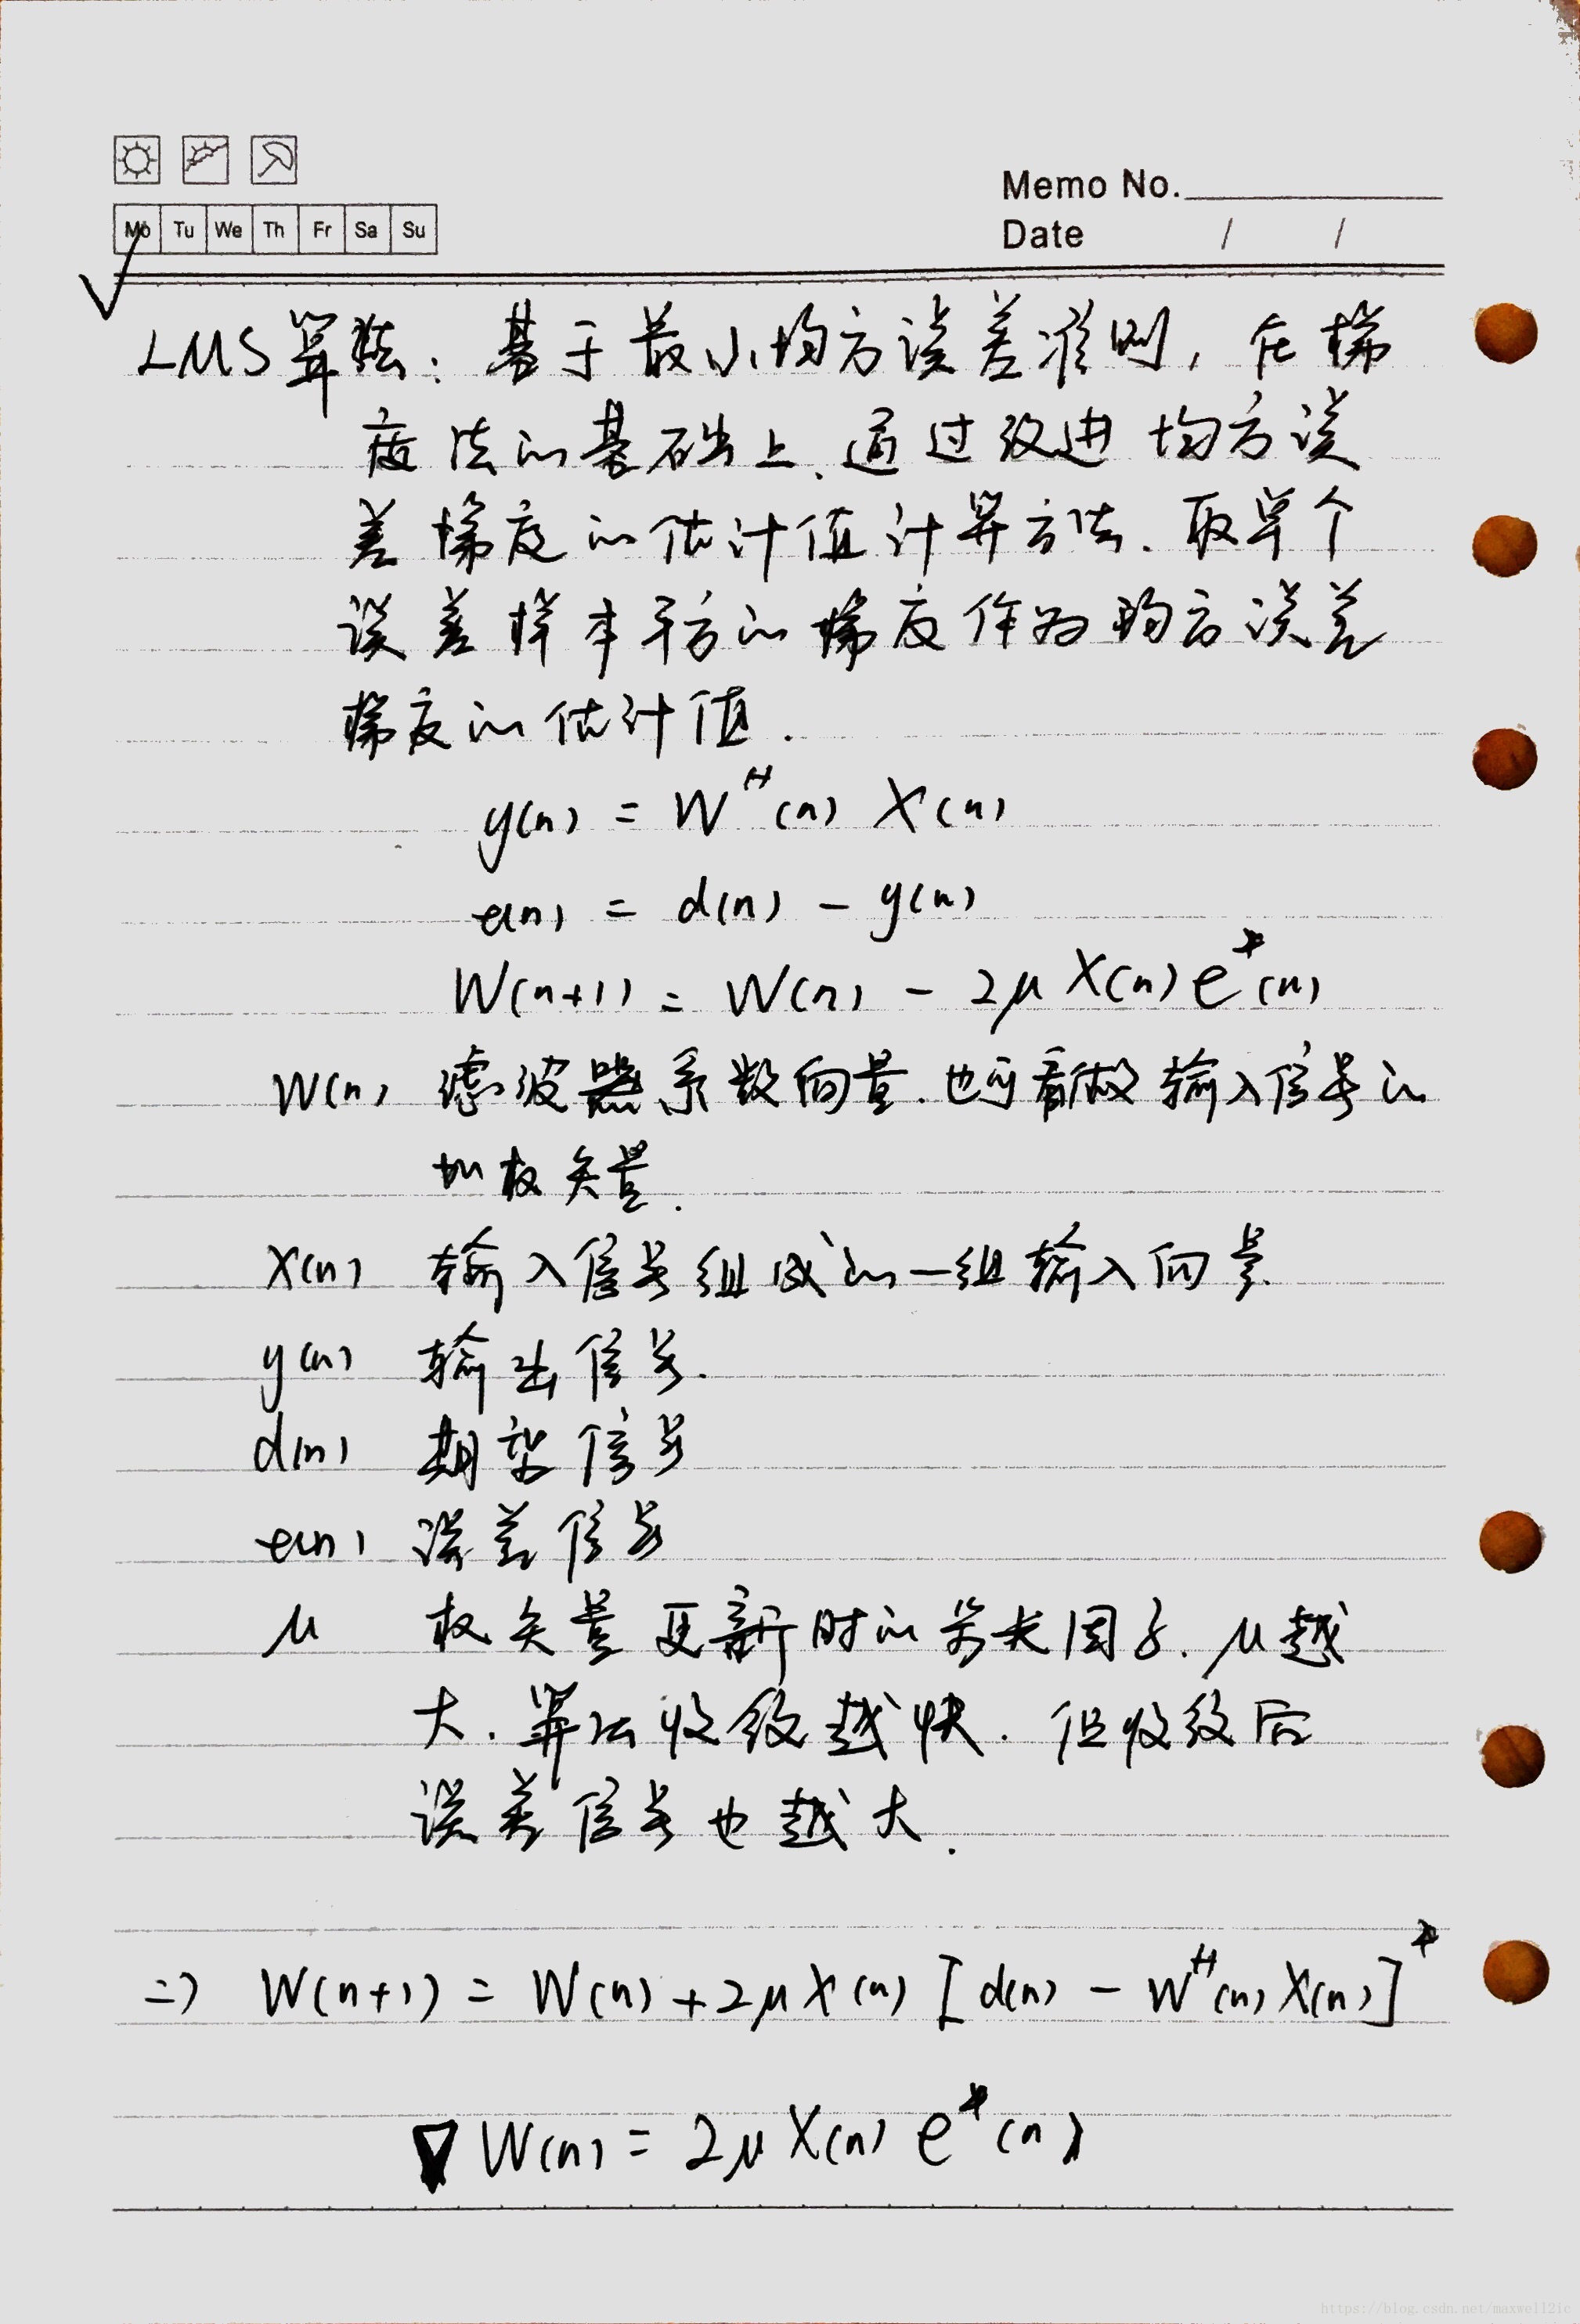 Memo No.
Mo Tu We Th Fr Sa Su
Date / /
LMS算法：基于最小均方误差准则，在梯
度法的基础上、通过改进均方误
差梯度的估计值计算方法、取单个
误差样本平方的梯度作为均方误差
梯度的估计值.
y(n) = W^H(n) X(n)
e(n) = d(n) - y(n)
W(n+1) = W(n) - 2μX(n)e*(n)
W(n) 滤波器系数向量.也可看做输入信号的
加权矢量.
X(n) 输入信号组成的一组输入向量.
y(n) 输出信号.
d(n) 期望信号
e(n) 误差信号
μ 权矢量更新时的步长因子.μ越
大.算法收敛越快.但收敛后
误差信号也越大.
=> W(n+1) = W(n) + 2μX(n) [d(n) - W^H(n)X(n)]*
∇W(n) = 2μX(n) e*(n)
https://blog.csdn.net/maxwell2ic